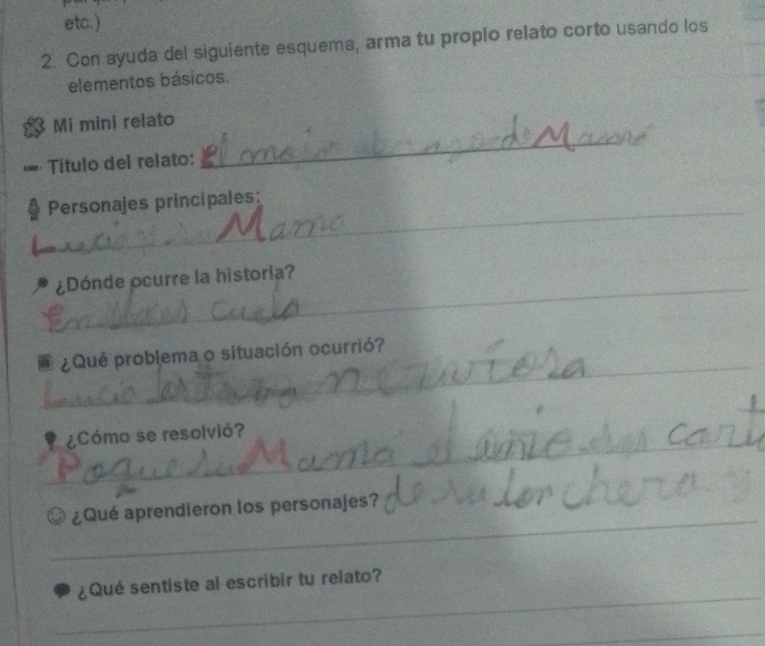 etc.)
2. Con ayuda del siguiente esquema, arma tu propio relato corto usando los
elementos básicos.
Mi mini relato
Título del relato: El mejor de Mamá
Personajes principales:
Lucia y su Mama
¿Dónde ocurre la historia?
En la es cuela
¿Qué problema o situación ocurrió?
Lucia estava nerviosa
¿Cómo se resolvió?
Poque su Mamá le cart
de su lonchera y
¿Qué aprendieron los personajes?
¿Qué sentiste al escribir tu relato?